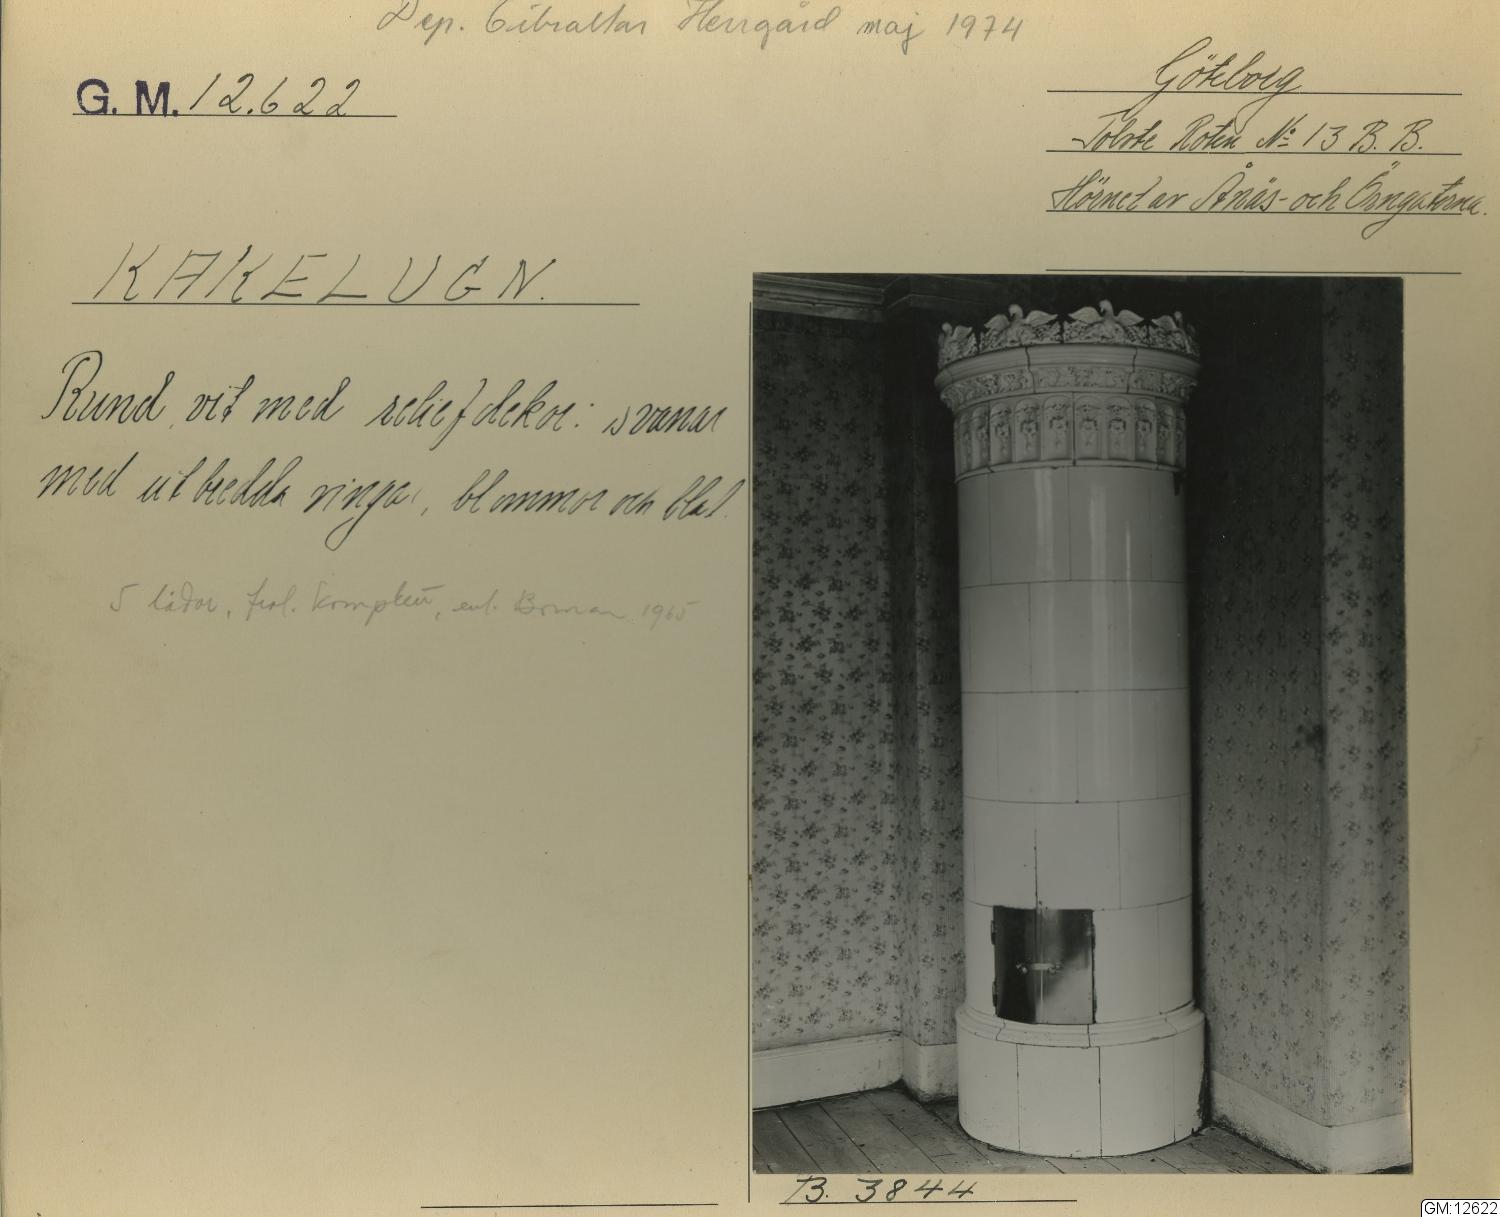 Dep. Gibraltar Herrgård maj 1974
G. M. 12.622
Göteborg
Tolvte Roten № 13 B. B.
Hörnet av Ånäs- och Örngatorna.
KAKELUGN.
Rund, vit med reliefdekor: svanar
med utbredda vingar, blommor och blad.
5 lådor, trol. komplett, enl. Boman 1965
B. 3844
GM:12622